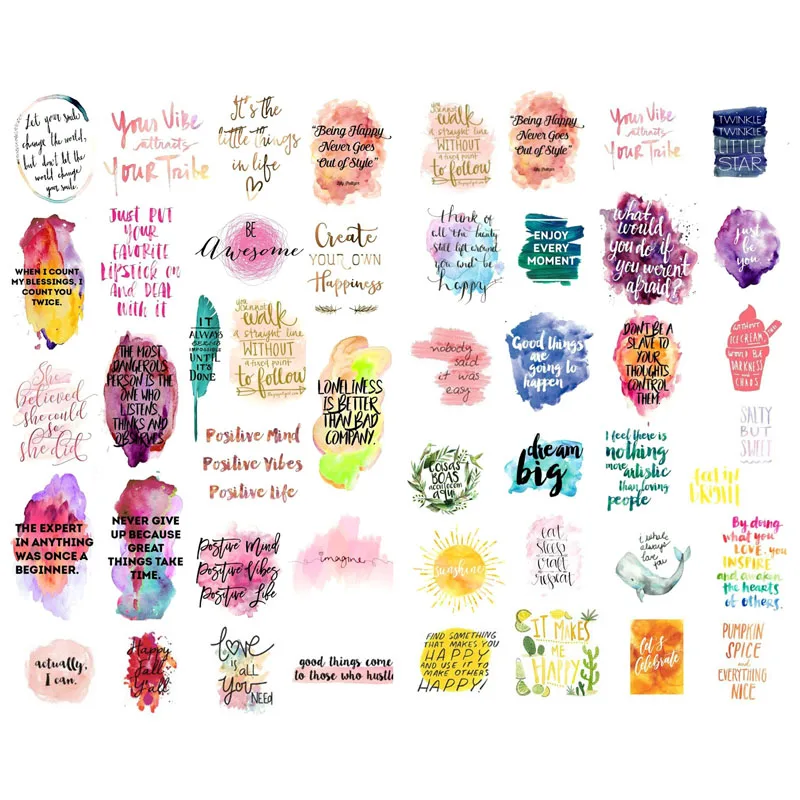 Let your smile
change the world,
but don't let the
world change
your smile.
Your Vibe
attracts
Your Tribe
It's the
little things
in life
"Being Happy
Never Goes
Out of Style"
WHEN I COUNT
MY BLESSINGS, I
COUNT YOU
TWICE.
Just put
your
favorite
lipstick on
and deal
with it
BE
Awesome
Create
YOUR OWN
Happiness
She
believed
she could
so
she did
THE MOST
DANGEROUS
PERSON IS THE
ONE WHO
LISTENS,
THINKS AND
OBSERVES.
IT
ALWAYS
SEEMS
IMPOSSIBLE
UNTIL
IT'S
DONE
you
cannot
walk
a straight line
WITHOUT
a fixed point
to follow
LONELINESS
IS BETTER
THAN BAD
COMPANY.
Positive Mind
Positive Vibes
Positive Life
THE EXPERT
IN ANYTHING
WAS ONCE A
BEGINNER.
NEVER GIVE
UP BECAUSE
GREAT
THINGS TAKE
TIME.
Positive Mind
Positive Vibes
Positive Life
imagine
actually,
I can.
Happy
fall
Y'all
LOVE
is ALL
You
NEED
good things come
to those who hustle
you
cannot
walk
a straight line
WITHOUT
a fixed point
to follow
"Being Happy
Never Goes
Out of Style"
Your Vibe
attracts
Your Tribe
TWINKLE
TWINKLE
LITTLE
STAR
think of
all the beauty
still left around
you and be
happy
ENJOY
EVERY
MOMENT
what
would
you do if
you weren't
afraid?
just
be
you
nobody
said
it was
easy
Good things
are
going to
happen
DON'T BE A
SLAVE TO
YOUR
THOUGHTS,
CONTROL
THEM.
WITHOUT
ICE CREAM,
WOULD BE
DARKNESS
and
CHAOS
SALTY
BUT
SWEET
COISAS
BOAS
acontecem
aqui
dream
big
I feel there is
nothing
more
artistic
than loving
people
sunshine
eat
sleep
craft
repeat
i whale
always
love you
By doing
what you
LOVE, you
INSPIRE
and awaken
the hearts
of others.
FIND SOMETHING
THAT MAKES YOU
HAPPY
AND USE IT TO
MAKE OTHERS
HAPPY!
IT MAKES
ME
HAPPY
Let's
Celebrate
PUMPKIN
SPICE
and
EVERYTHING
NICE